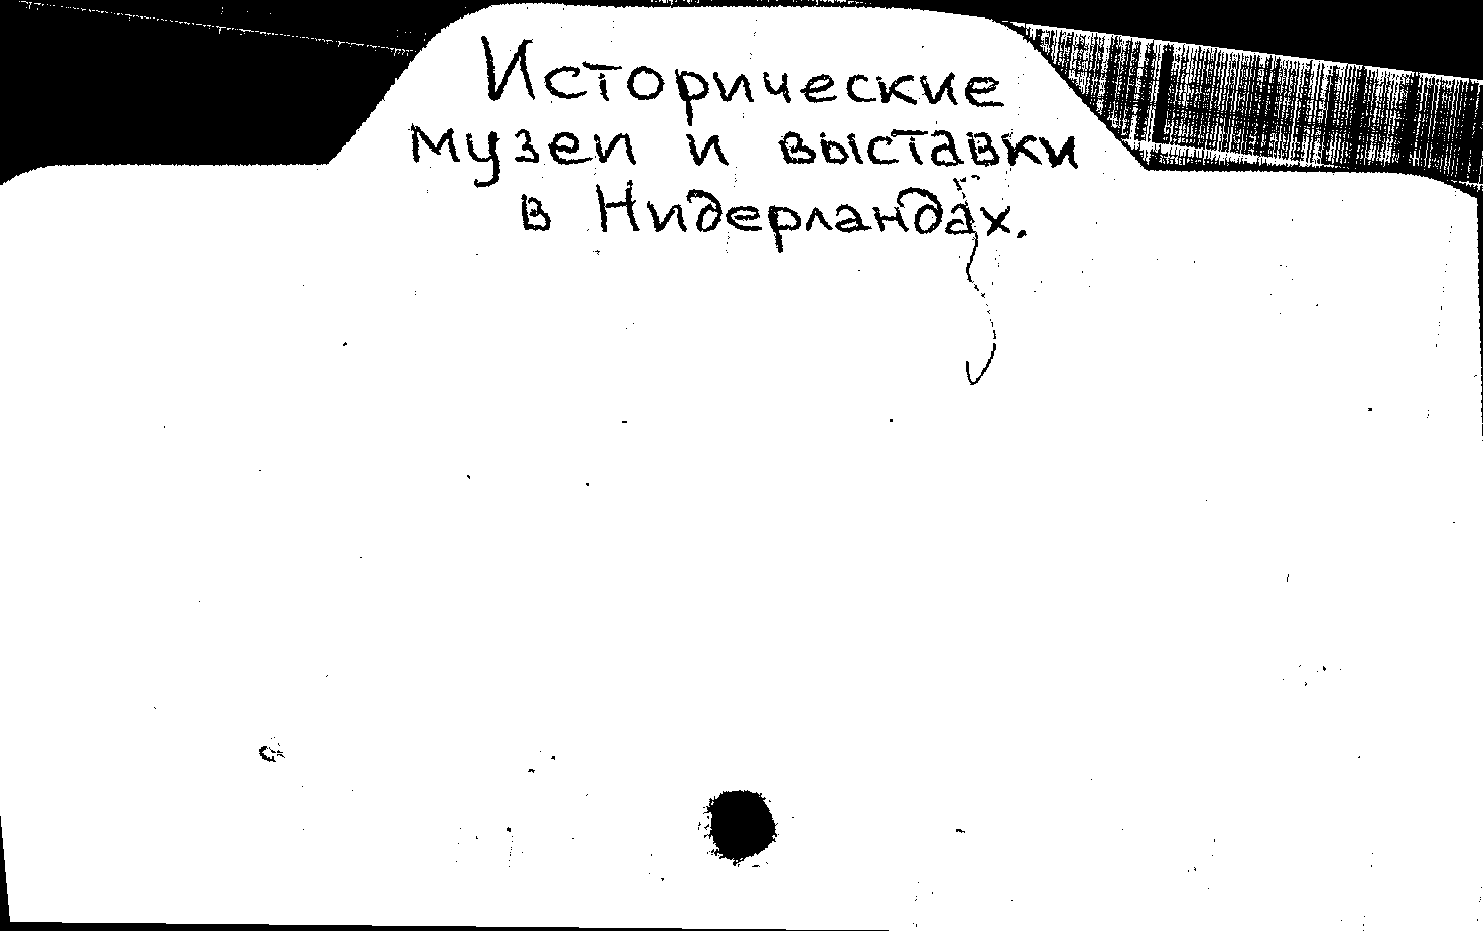 Исторические
музеи и выставки
в Нидерландах.